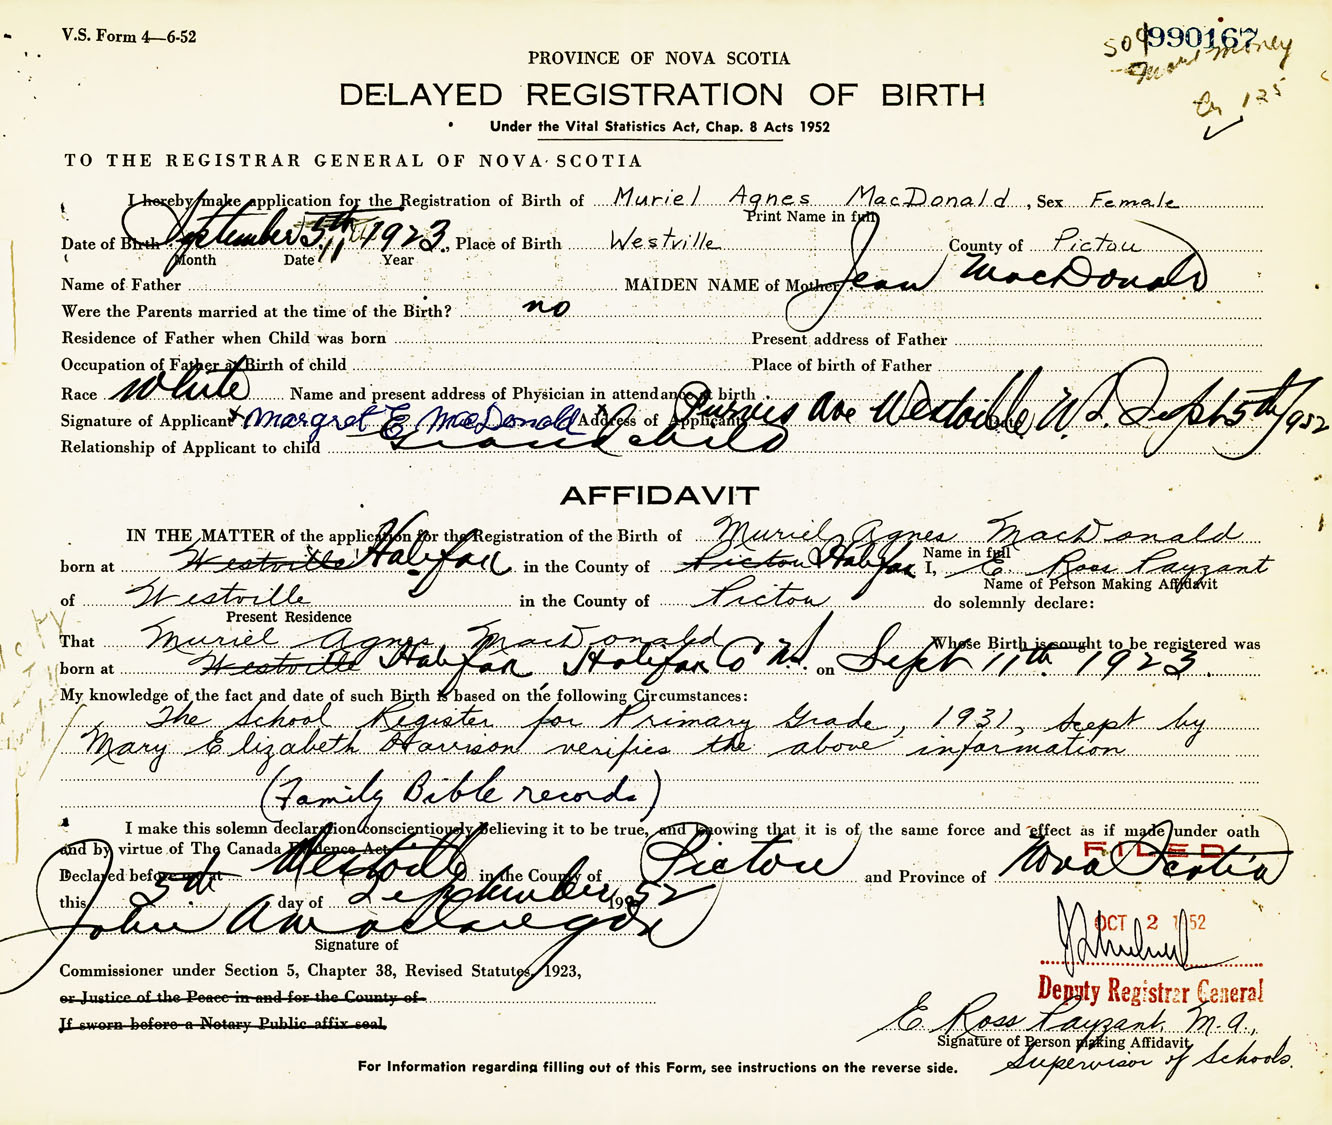 V.S. Form 4—6-52
990167
50¢
PROVINCE OF NOVA SCOTIA
DELAYED REGISTRATION OF BIRTH
Under the Vital Statistics Act, Chap. 8 Acts 1952
TO THE REGISTRAR GENERAL OF NOVA SCOTIA
I hereby make application for the Registration of Birth of Muriel Agnes MacDonald, Sex Female
Print Name in full
Date of Birth September 5th 11 1923, Place of Birth Westville County of Pictou
Month Date Year
Name of Father MAIDEN NAME of Mother Jean MacDonald
Were the Parents married at the time of the Birth? no
Residence of Father when Child was born Present address of Father
Occupation of Father at Birth of child Place of birth of Father
Race White Name and present address of Physician in attendance at birth
Signature of Applicant x Margret E MacDonald x Address of Applicant Purvis Ave Westville N.S. Sept 5th/1952
Relationship of Applicant to child Grandchild
AFFIDAVIT
IN THE MATTER of the application for the Registration of the Birth of Muriel Agnes MacDonald
Name in full
born at Westville Halifax in the County of Pictou Halifax I, E. Ross Payzant
Name of Person Making Affidavit
of Westville in the County of Pictou do solemnly declare:
Present Residence
That Muriel Agnes MacDonald Whose Birth is sought to be registered was
born at Westville Halifax, Halifax Co N.S. on Sept 11th. 1923.
My knowledge of the fact and date of such Birth is based on the following Circumstances:
The School Register for Primary Grade, 1931, kept by
Mary Elizabeth Harrison verifies the above information
(Family Bible records)
I make this solemn declaration conscientiously believing it to be true, and knowing that it is of the same force and effect as if made under oath
and by virtue of The Canada Evidence Act.
FILED
Declared before me at Westville in the County of Pictou and Province of Nova Scotia
this 5th day of September 1952
John A MacGregor
Signature of
OCT 2 1952
Commissioner under Section 5, Chapter 38, Revised Statutes, 1923,
or Justice of the Peace in and for the County of
Deputy Registrar General
If sworn before a Notary Public affix seal.
E Ross Payzant, M.A.,
Signature of Person making Affidavit
Supervisor of Schools.
For Information regarding filling out of this Form, see instructions on the reverse side.